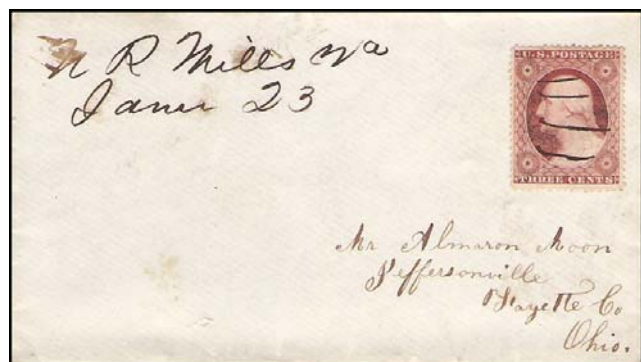 N R Mills Va
Janu 23
U.S. POSTAGE
THREE CENTS
Mr Almaron Moon
Jeffersonville
Fayette Co
Ohio.